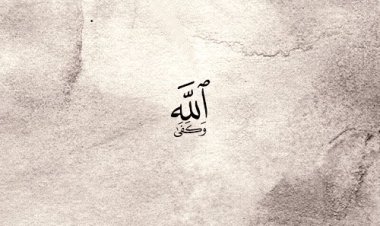 ٱللَّهِ
وَكَفَىٰ